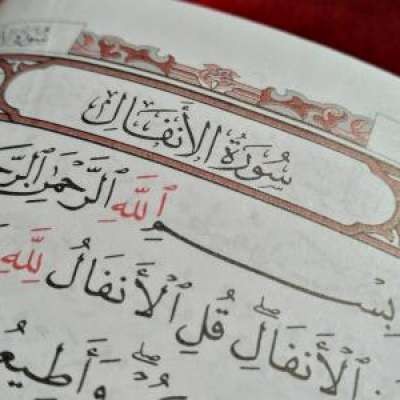 سُورَةُ الأَنفَالِ
بِسْمِ ٱللَّهِ ٱلرَّحْمَٰنِ
ٱلْأَنفَالِۖ قُلِ ٱلْأَنفَالُ لِلَّهِ
وَأَطِيعُ